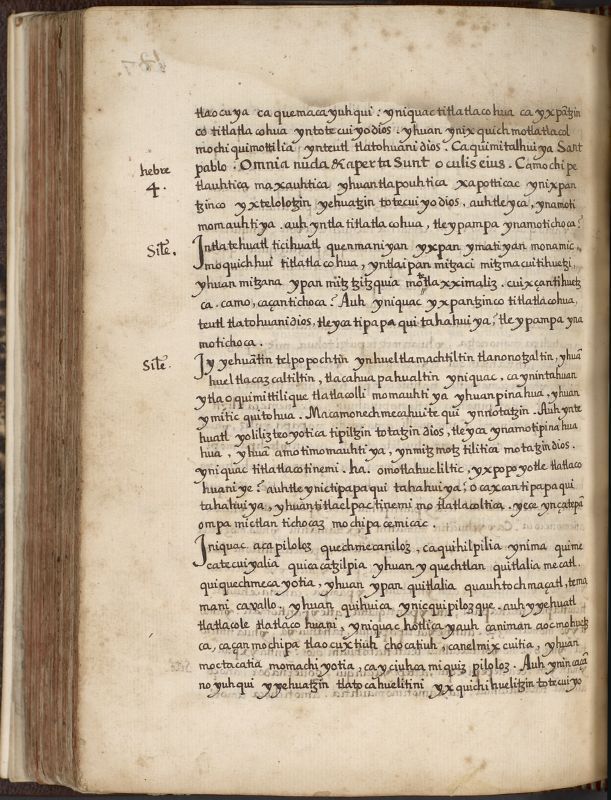 tlaocuya ca quemaca yuhqui: yniquac titlatlacohua ca yxpãtzin
co titlatlacohua yntotecuiyo dios. yhuan ynixquich motlatlacol
mochi quimottilia ynteutl tlatohuani dios. Ca quimitalhui ya Sant
pablo. Omnia nuda & aperta Sunt oculis eius. Camochi pe
hebre
4.
tlauhtica maxauhtica yhuan tlapouhtica xapotticac ynixpan
tzinco yxtelolotzin yehuatzin totecuiyo dios, auh tleyca, ynamoti
momauhtiya. auh yntla titlatlacohua, tleypampa ynamotichoca?
Sile.
Intlatehuatl ticihuatl quenmaniyan yxpan ymatiyan monamic,
moquichhui titlatlacohua, yntlaipan mitzaci mitzmacuitihuetzi,
yhuan mitzana ypan mitztzitzquia motlaxximaliz. cuix çantihuetz
ca. camo, caçantichoca? Auh yniquac yxpantzinco titlatlacohua,
teutl tlatohuani dios, tleyca tipapaqui tahahuiya? tleypampa yna
motichoca.
Sile.
Iy yehuãtin telpopochtin ynhueltlamachtiltin tlanonotzaltin, yhuã
hueltlacazcaltiltin, tlacahuapahualtin yniquac, ca ynintahuan
ytla oquimittilique tlatlacolli momauhtiya yhuan pinahua, yhuan
ymitic quitohua. Macamonechmecahuitequi ynnotatzin. Auh ynte
huatl yoliliz teoyotica tipiltzin totatzin dios, tleyca ynamotipinahua
hua, yhuã amotimomauhtiya, ynmitzmotztilitica motatzin dios.
yniquac titlatlacotinemi. ha. omotlahueliltic, yxpopoyotle tlatlaco
huaniye? auhtle ynictipapaqui tahahuiya? o caxcantipapaqui
tahahuiya, yhuan titlaelpactinemi motlatlacoltica. yece ynçatepã
ompa mictlan tichocaz mochipa cemicac.
Iniquac aca piloloz quechmecaniloz, ca quihilpilia ynima quime
catecuiyalia quicacatzilpia yhuan yquechtlan quitlalia mecatl.
quiquechmecayotia, yhuan ypan quitlalia quauhtochmaçatl, tema
mani cavallo. yhuan quihuica ynic quipilozque. auh yyehuatl
tlatlacole tlatlacohuani, yniquac hotlica yauh caniman aocmohuetz
ca, caçan mochipa tlaocuxtiuh chocatiuh, canelmixcuitia, yhuan
moctacatia momachiyotia, ca yciuhca miquiz piloloz. Auh ynin çaçã
no yuhqui yyehuatzin tlatocahuelitini yxquichihuelitzin totecuiyo